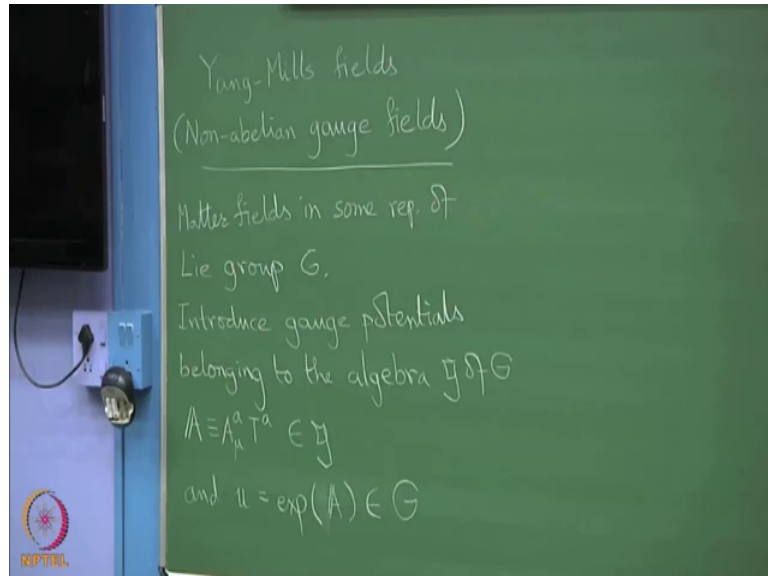 Yang-Mills fields
(Non-abelian gauge fields)
Matter fields in some rep. of
Lie group G.
Introduce gauge potentials
belonging to the algebra 𝔤 of G
𝔸 ≡ A^a_μ T^a ∈ 𝔤
and u = exp(𝔸) ∈ G
NPTEL